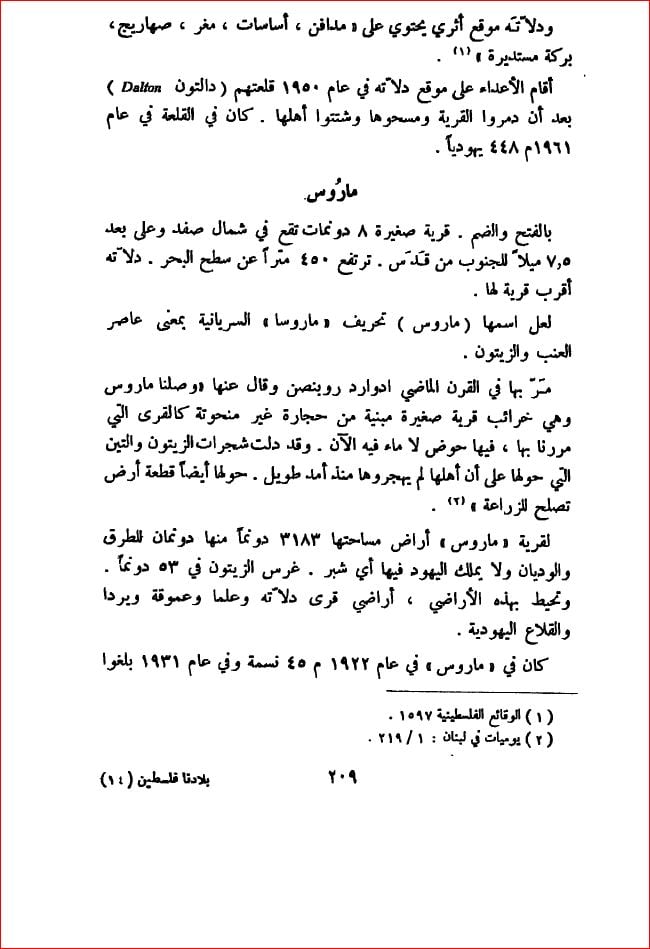 ودلاّتَه موقع أثري يحتوي على « مدافن ، أساسات ، مغر ، صهاريج،
بركة مستديرة » (١) .
أقام الأعداء على موقع دلاّته في عام ١٩٥٠ قلعتهم ( دالتون Dalton )
بعد أن دمروا القرية ومسحوها وشتتوا أهلها . كان في القلعة في عام
١٩٦١م ٤٤٨ يهودياً .
مارُوس
بالفتح والضم . قرية صغيرة ٨ دونمات تقع في شمال صفد وعلى بعد
٧,٥ ميلاً للجنوب من قَدَس . ترتفع ٤٥٠ متراً عن سطح البحر . دلاّته
أقرب قرية لها .
لعل اسمها ( ماروس ) تحريف «ماروسا» السريانية بمعنى عاصر
العنب والزيتون .
مَرّ بها في القرن الماضي ادوارد روبنصن وقال عنها «وصلنا ماروس
وهي خرائب قرية صغيرة مبنية من حجارة غير منحوتة كالقرى التي
مررنا بها ، فيها حوض لا ماء فيه الآن . وقد دلت شجرات الزيتون والتين
التي حولها على أن أهلها لم يهجروها منذ أمد طويل . حولها أيضاً قطعة أرض
تصلح للزراعة » (٢) .
لقرية « ماروس » أراض مساحتها ٣١٨٣ دونماً منها دونمان للطرق
والوديان ولا يملك اليهود فيها أي شبر . غرس الزيتون في ٥٣ دونماً .
وتحيط بهذه الأراضي ، أراضي قرى دلاّته وعلما وعموقة ويردا
والقلاع اليهودية .
كان في « ماروس » في عام ١٩٢٢ م ٤٥ نسمة وفي عام ١٩٣١ بلغوا
( ١ ) الوقائع الفلسطينية ١٥٩٧ .
( ٢ ) يوميات في لبنان : ١ / ٢١٩ .
٢٠٩
بلادنا فلسطين (١٤)